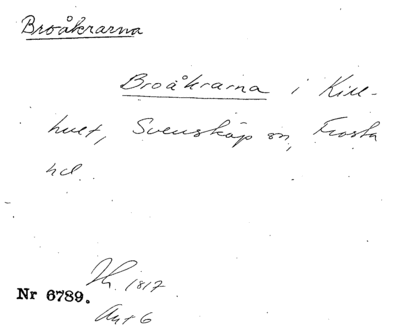 Broåkrarna
Broåkrarna i Kill-
hult, Svensköp sn, Frosta
hd.
1817
Nr 6789.
Akt 6